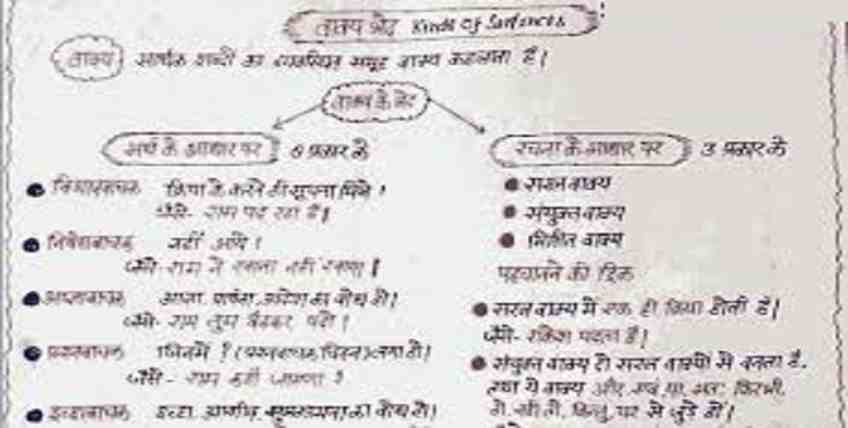 वाक्य भेद Kinds of Sentences
वाक्य सार्थक शब्दों का व्यवस्थित समूह वाक्य कहलाता है।
वाक्य के भेद
अर्थ के आधार पर
रचना के आधार पर 3 प्रकार के
विधानवाचक क्रिया के करने की सूचना मिले।
जैसे- राम पढ़ रहा है।
निषेधवाचक नहीं आये।
जैसे- राम ने खाना नहीं खाया।
आज्ञावाचक आज्ञा, प्रार्थना, आदेश का बोध हो।
जैसे- राम तुम बैठकर पढ़ो।
प्रश्नवाचक जिनमें ? (प्रश्नवाचक चिह्न) लगा हो।
जैसे- राम कहाँ जाएगा ?
इच्छावाचक इच्छा, का बोध हो।
सरल वाक्य
संयुक्त वाक्य
मिश्रित वाक्य
पहचानने की ट्रिक
सरल वाक्य में एक ही क्रिया होती है।
जैसे- राकेश पढ़ता है।
संयुक्त वाक्य दो सरल वाक्यों से बनता है,
तथा ये वाक्य और, एवं, या, अतः, फिर भी,
तो, किन्तु, पर से जुड़े हों।